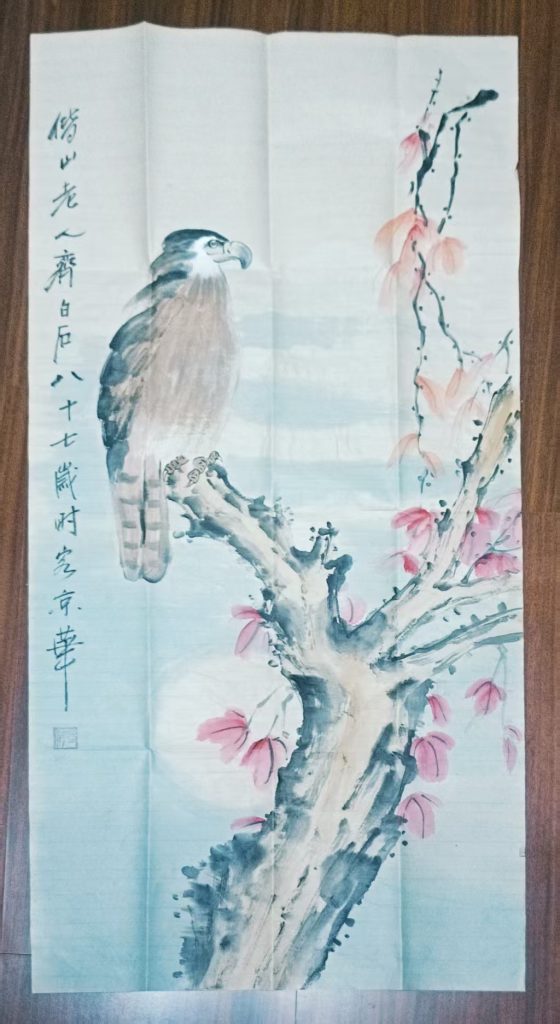 借山老人齊白石八十七歲时客京華